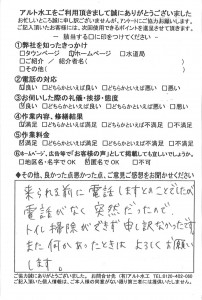 アルト水工をご利用頂きまして誠にありがとうございました
お忙しいところ誠に申し訳ございませんが、アンケートにご協力お願いします。
ご記入頂いたお客様には、次回使用できるポイントを進呈させて頂きます。
― 該当する□に印をつけてください ―
①弊社を知ったきっかけ
□タウンページ ☑ホームページ □水道局
□ご紹介 / ご紹介者名（ ）
□その他（ ）
②電話の対応
☑良い □どちらかといえば良い □どちらかといえば悪い □悪い
③お伺いした際の礼儀・挨拶・態度
☑良い □どちらかといえば良い □どちらかといえば悪い □悪い
④作業内容、修繕結果
☑満足 □どちらかといえば満足 □どちらかといえば不満足 □不満足
⑤作業料金
☑満足 □どちらかといえば満足 □どちらかといえば不満足 □不満足
⑥ホームページ、広告等で「お客様の声」として掲載しても宜しいでしょうか。
□地区名・名字でOK ☑匿名でOK □不可
◆その他、良かった点悪かった点、ご意見ご感想をお聞かせください
来られる前に電話しますとのことでしたが
電話がなく突然だったので、
トイレ掃除ができず申し訳なかったです
また何かあったときは よろしくお願い
します。
ご協力誠にありがとうございました。 お問合せ先 (有)アルト水工 TEL:0120-492-080
ご記入頂いた個人情報は、ご本人様の同意がない限り第三者には提供いたしません。